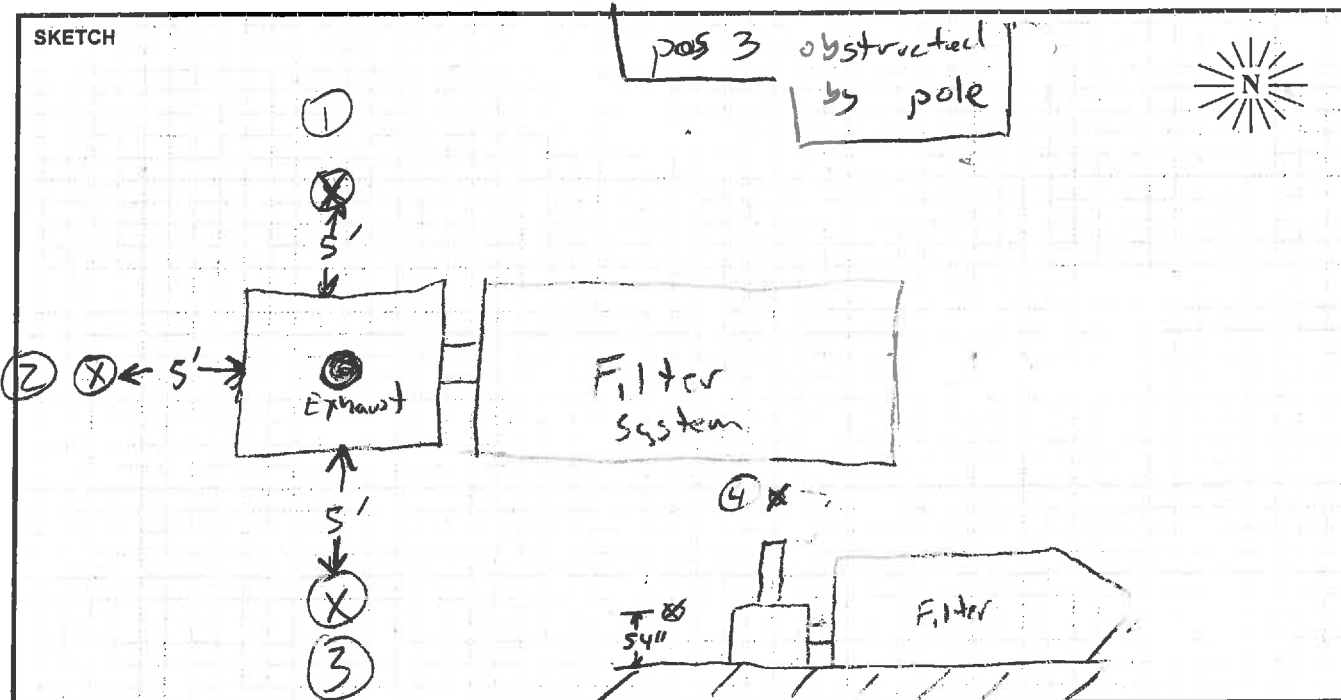 SKETCH
pos 3 obstructed
by pole
N
1
X
5'
2 X 5'
Exhaust
Filter
system
5'
X
3
4 X
54"
Filter